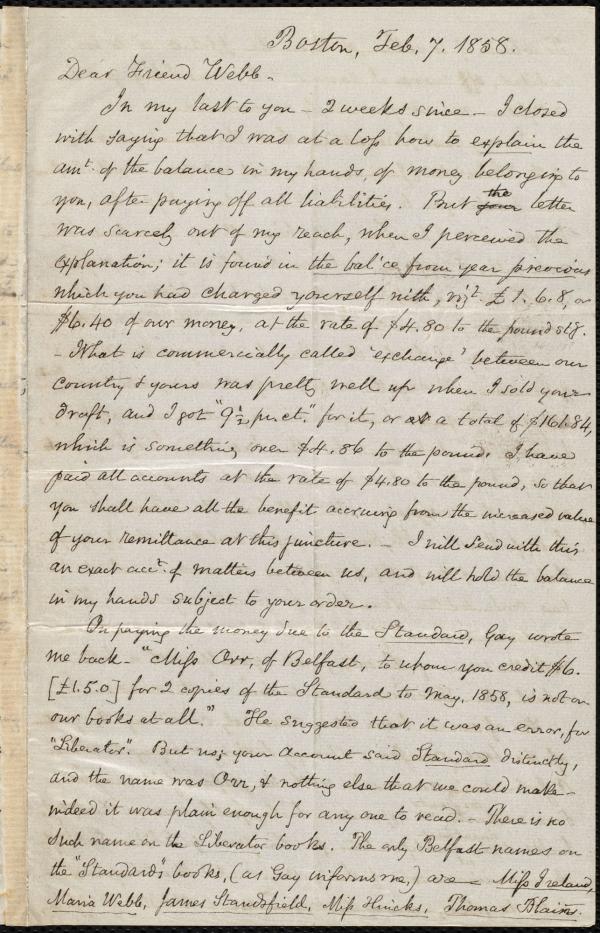 Boston, Feb. 7. 1858.
Dear Friend Webb-
In my last to you - 2 weeks since - I closed
with saying that I was at a loss how to explain the
amt. of the balance in my hands, of money belonging to
you, after paying off all liabilities. But the your letter
was scarcely out of my reach, when I perceived the
explanation; it is found in the bal'ce from year previous
which you had charged yourself with, viz. £1.6.8, or
$6.40 of our money, at the rate of $4.80 to the pound stg.
- What is commercially called "exchange" between our
country & yours was pretty well up when I sold your
draft, and I got "9½ pr. ct." for it, or at a total of $161.84,
which is something over $4.86 to the pound. I have
paid all accounts at the rate of $4.80 to the pound, so that
you shall have all the benefit accruing from the increased value
of your remittance at this juncture. - I will send with this
an exact acct. of matters between us, and will hold the balance
in my hands subject to your order.
On paying the money due to the Standard, Gay wrote
me back - "Miss Orr, of Belfast, to whom you credit $6.
[£1.5.0] for 2 copies of the Standard to May, 1858, is not on
our books at all." He suggested that it was an error, for
"Liberator". But no; your Account said Standard distinctly,
and the name was Orr, & nothing else that we could make -
indeed it was plain enough for any one to read. - There is no
such name on the Liberator books. The only Belfast names on
the "Standard's" books, (as Gay informs me,) are - Miss Ireland,
Maria Webb, James Standfield, Miss Hincks, Thomas Blain.